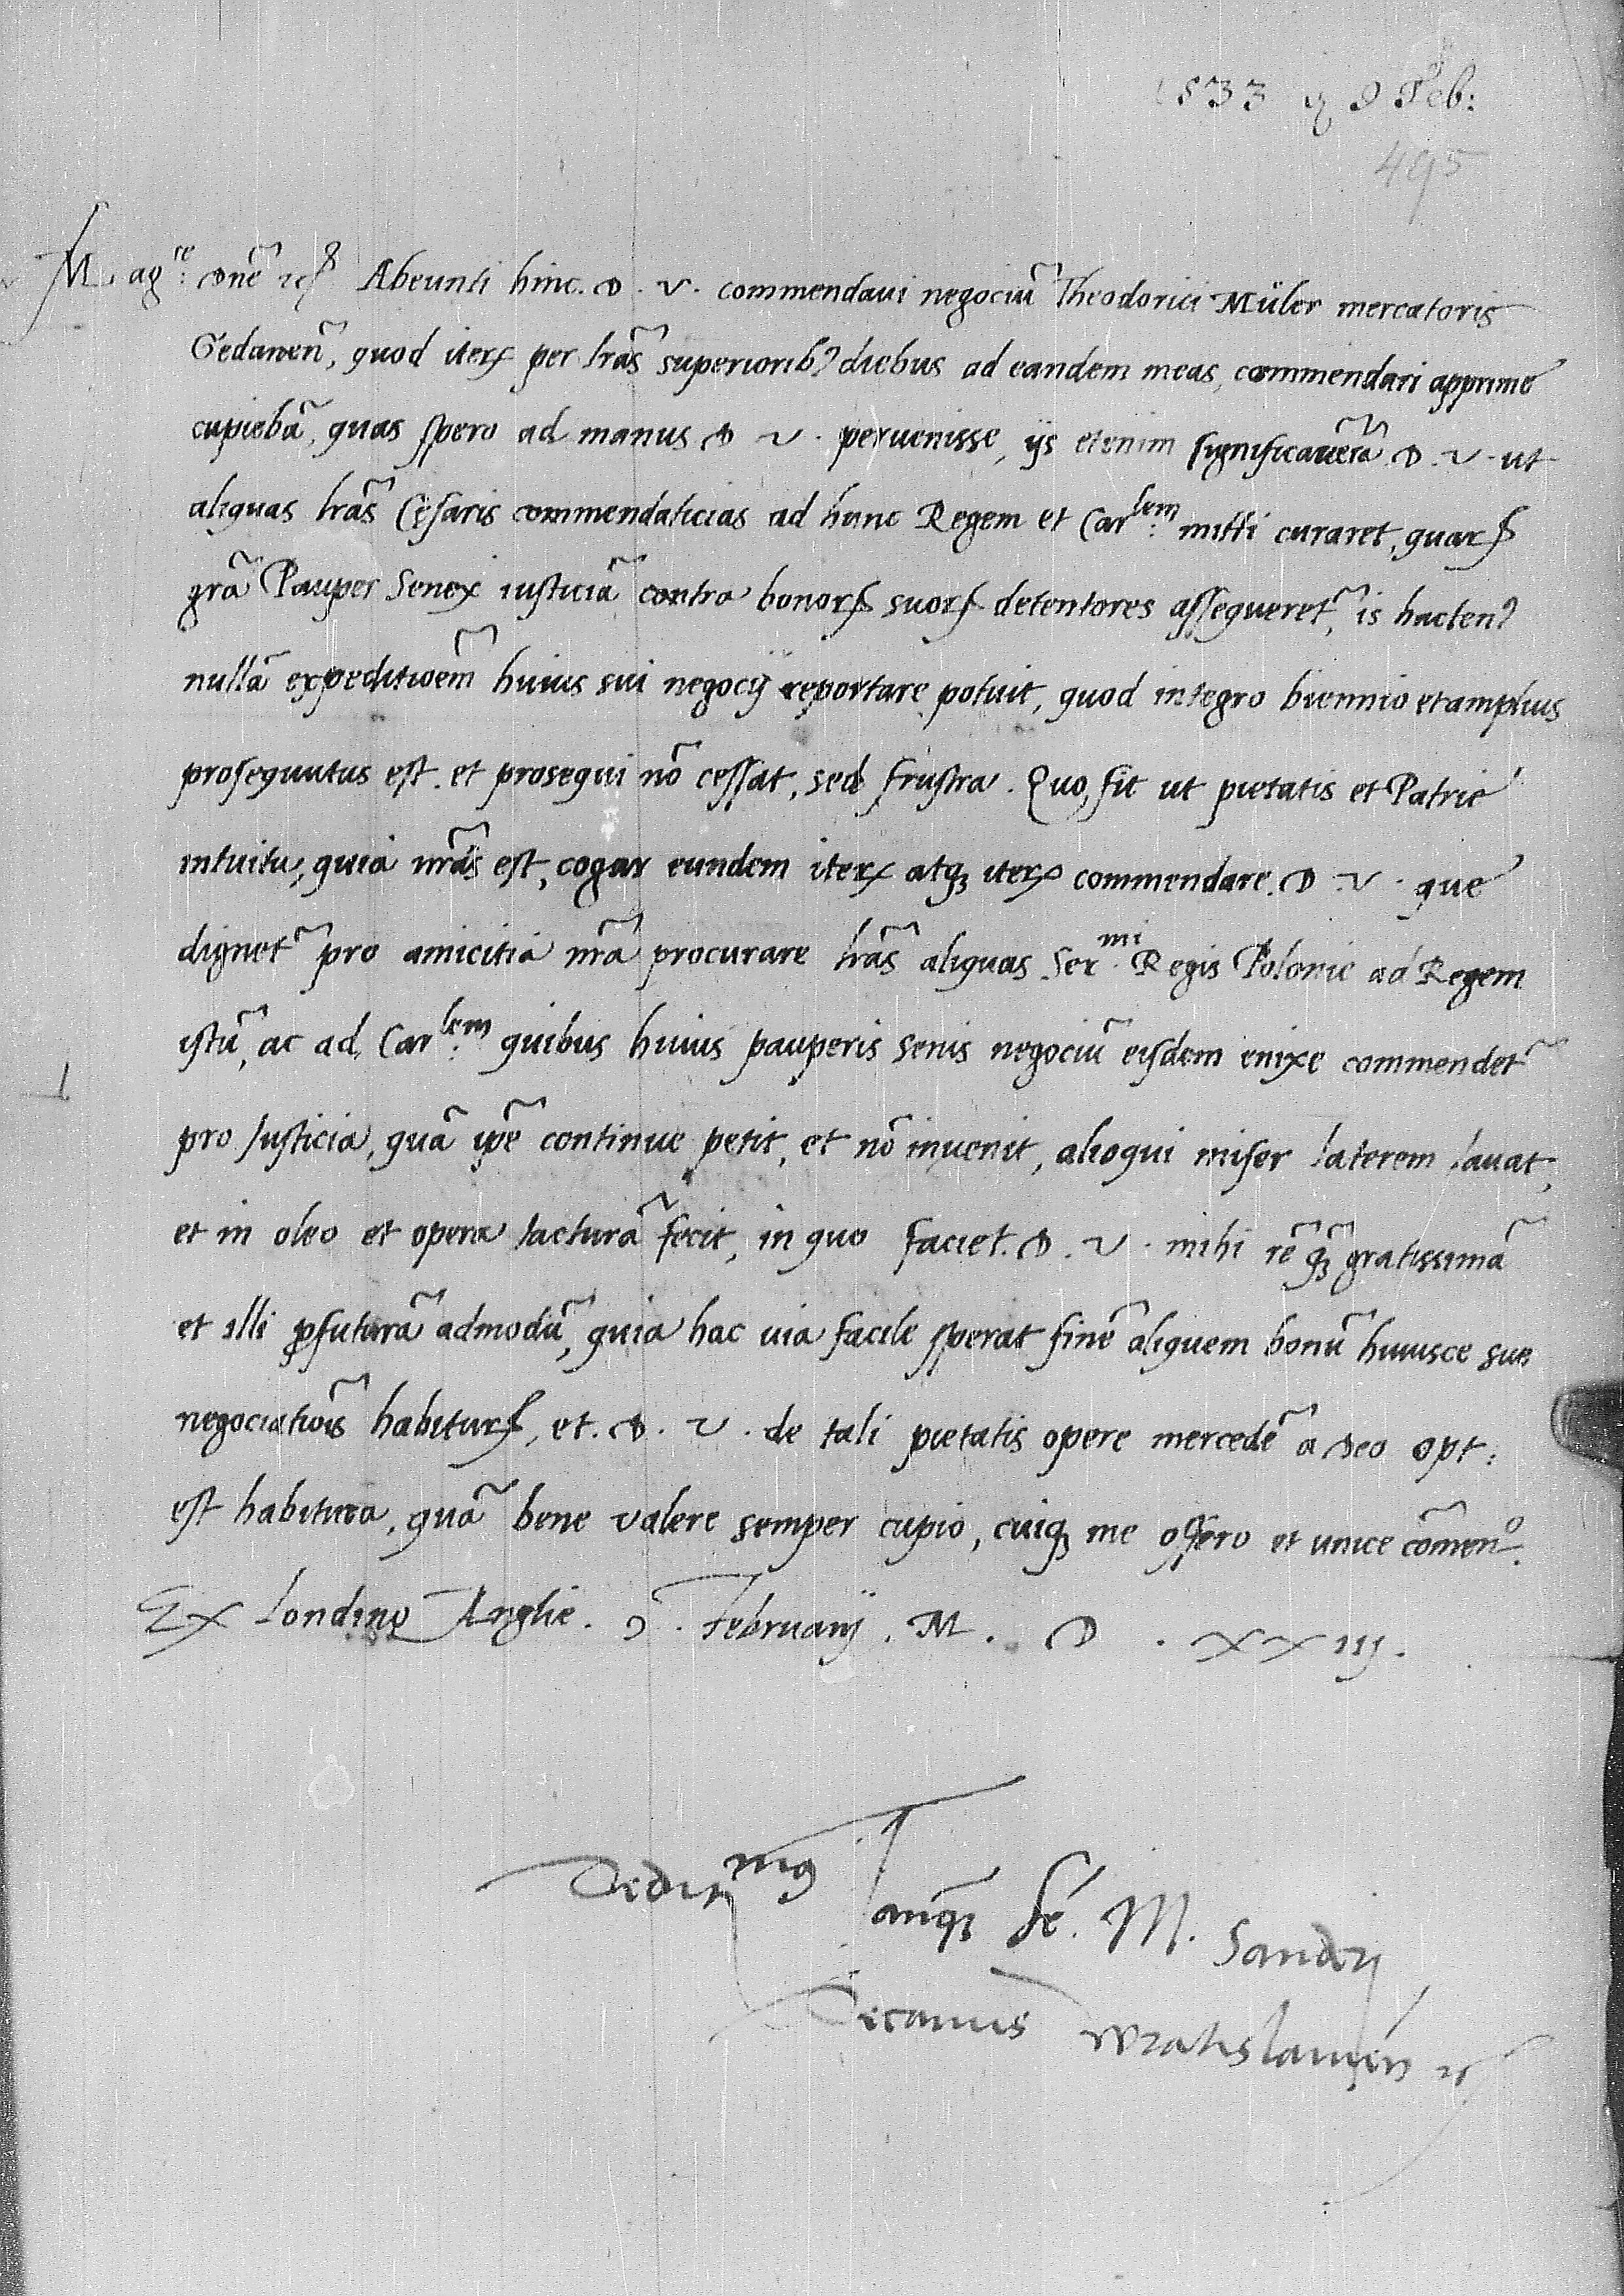 1533 9 Feb:
495
Magre: dnē etc Abeunti hinc. D. V. commendaui negociū Theodorici Müler mercatoris
Gedanen̄, quod iterꝝ per lrās superiorib9 diebus ad eandem meas, commendari apprime
cupiebā, quas spero ad manus D V. peruenisse, ijs etenim significauerā. D. V. ut
aliquas lrās Cesaris commendaticias ad hunc Regem et Carlem: mitti curaret, quarꝝ
grā Pauper Senex iusticiā contra bonorꝝ suorꝝ detentores assequeret~, is hacten9
nullā expeditioēm huius sui negocij reportare potuit, quod integro biennio et amplius
prosequutus est. et prosequi nō cessat, sed frustra. Quo, fit ut pietatis et Patrie
intuitu, quia nrās est, cogar eundem iterꝝ atqꝫ iterꝝ commendare. D. V. que
dignet~ pro amicitia nrā procurare lrās aliquas Sermi. Regis Polonie ad Regem
istū, ac ad, Carlem: quibus huius pauperis senis negociū eisdem enixe commendet~
pro Justicia, quā ipē continue petit, et nō inuenit, alioqui miser laterem lauat,
et in oleo et opera iacturā fecit, in quo faciet. D. V. mihi rē qꝫ̄ gratissimā
et illi ꝓfuturā admodū, quia hac uia facile sperat finē aliquem bonū huiusce sue
negociatiois̄ habiturꝝ, et. D. V. de tali pietatis opere mercedē a deo opt:
est habitura, quā bene valere semper cupio, cuiqꝫ me offero et unice cōmen.o
Ex Londino Anglie. 9. Februarij. M. D. XXIII.
Dedit.mus
tanqꝫ̄ fr̄. M. Sandrj
Decanus wratislauien̄ etc